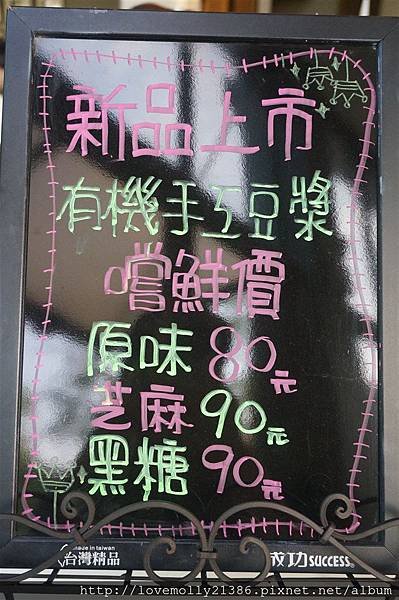 新品上市
有機手工豆漿
嚐鮮價
原味 80元
芝麻 90元
黑糖 90元
made in taiwan
台灣精品
成功 SUCCESS
http://lovemolly21386.pixnet.net/album